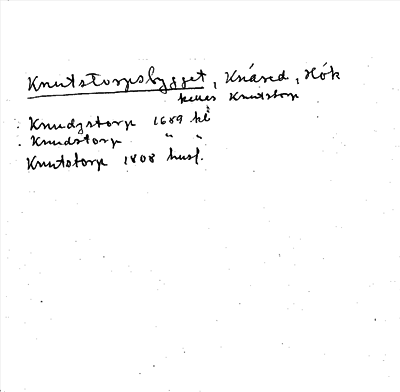 Knutstorpsbygget, Knäred, Hök
kallas Knutstorp
: Knudzstorp 1689 kl
. Knudstorp " "
Knutstorp 1808 husf.